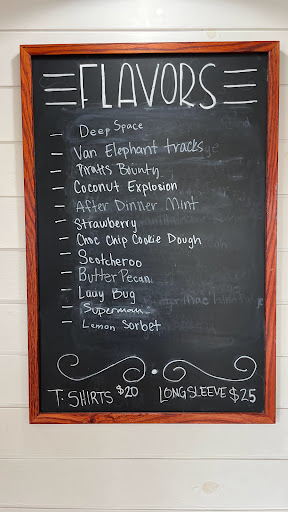 FLAVORS
- Deep Space
- Van Elephant tracks
- Piratts Bounty
- Coconut Explosion
- After Dinner Mint
- Strawberry
- Choc Chip Cookie Dough
- Scotcheroo
- Butter Pecan
- Lauy Bug
- Superman
- Lemon Sorbet
T. SHIRTS $20 LONGSLEEVE $25